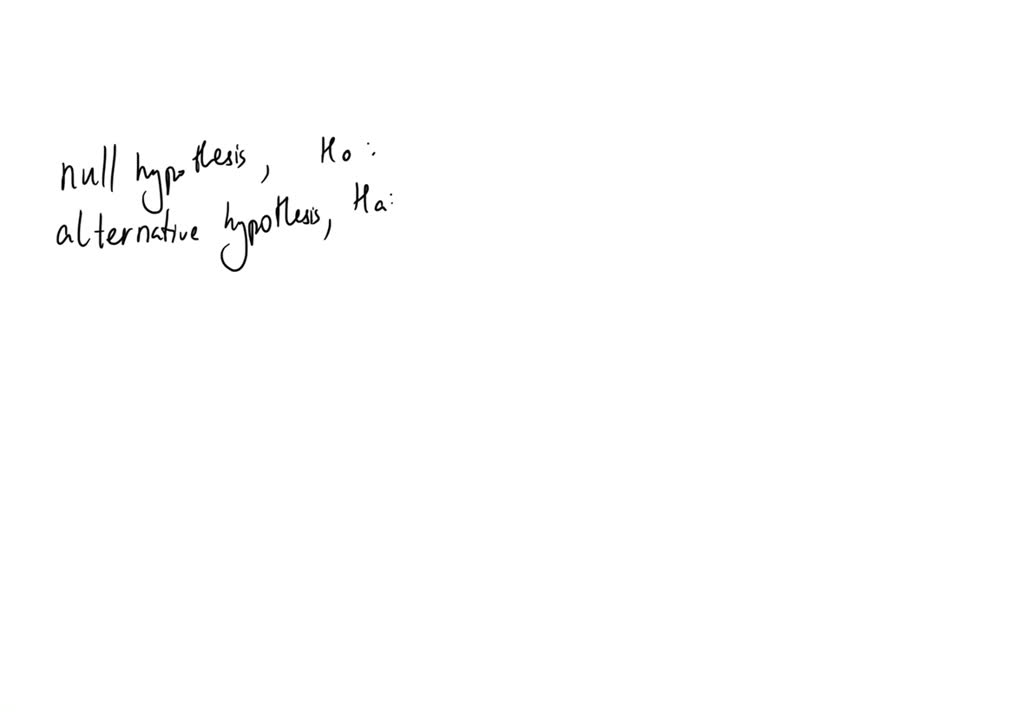 null hypothesis, Ho:
alternative hypothesis, Ha: